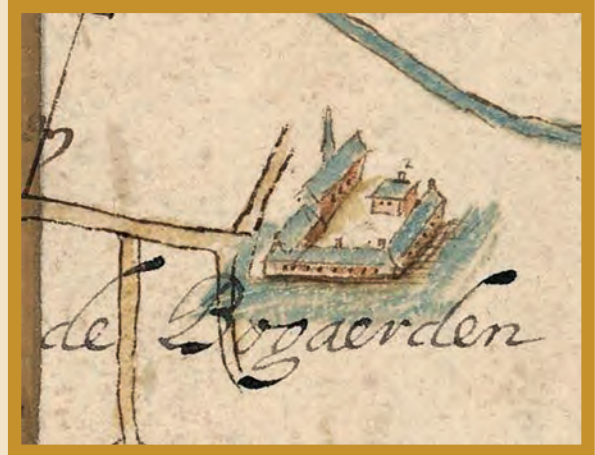 de Bogaerden